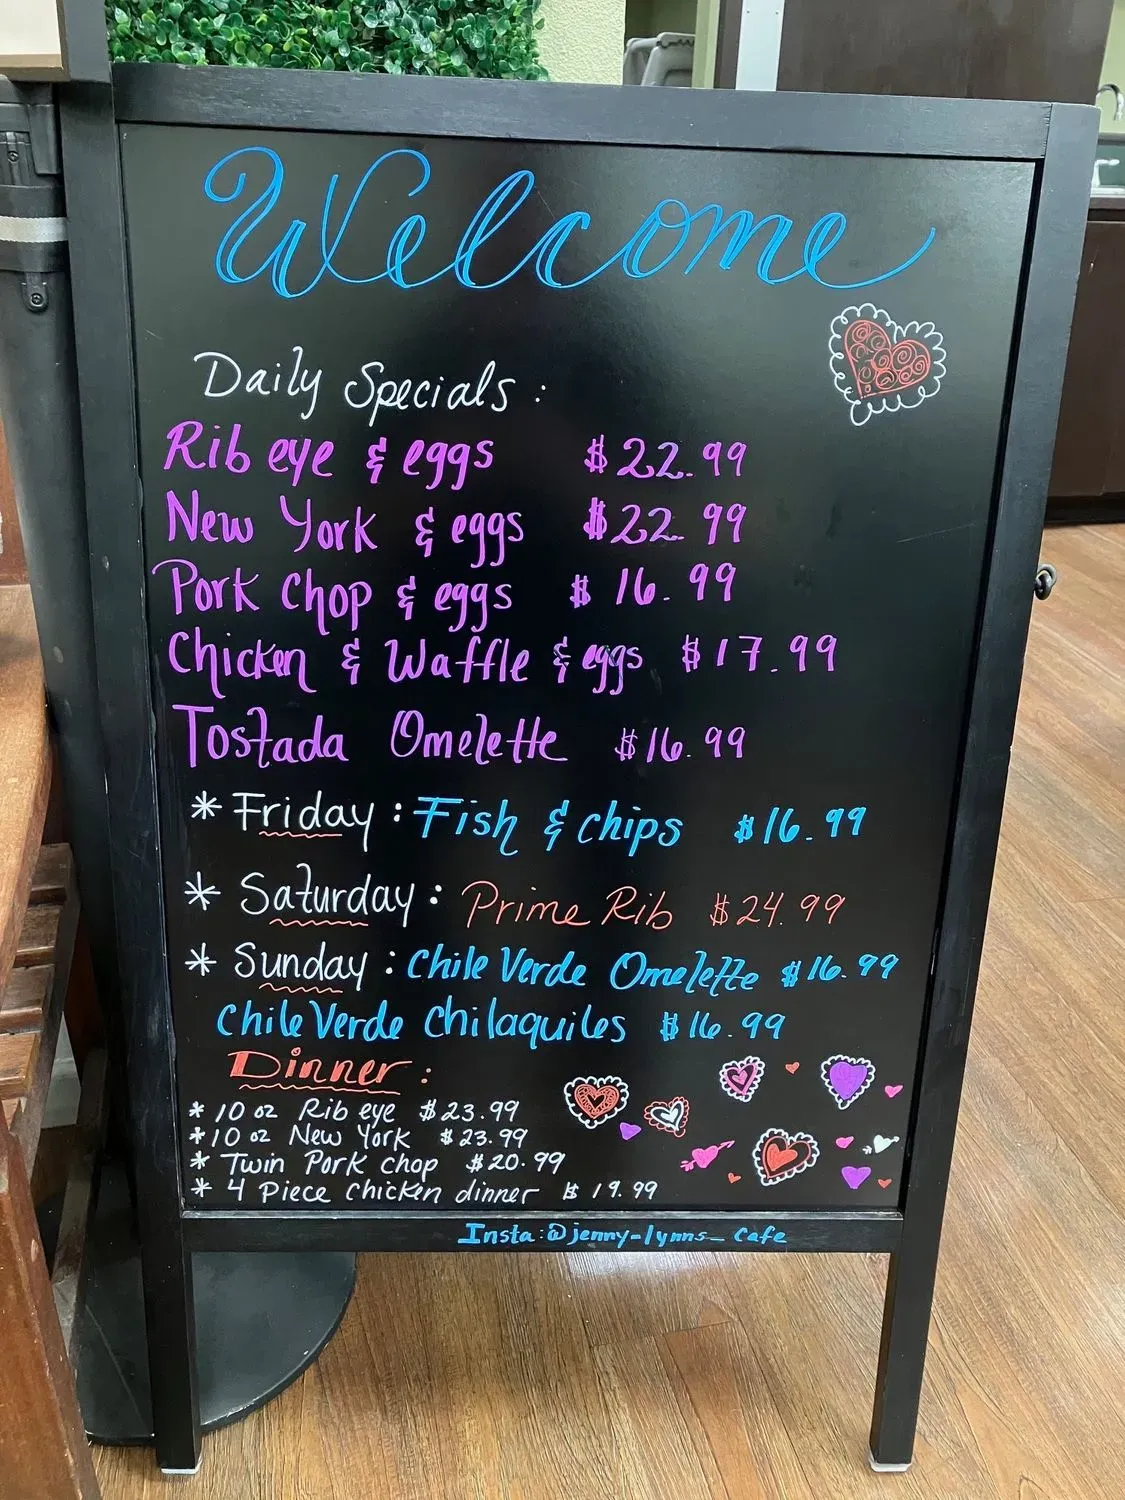 Welcome
Daily Specials :
Rib eye & eggs $22.99
New York & eggs $22.99
Pork Chop & eggs $16.99
Chicken & Waffle & eggs $17.99
Tostada Omelette $16.99
* Friday : Fish & chips $16.99
* Saturday : Prime Rib $24.99
* Sunday : Chile Verde Omelette $16.99
Chile Verde Chilaquiles $16.99
Dinner :
* 10 oz Rib eye $23.99
* 10 oz New York $23.99
* Twin Pork Chop $20.99
* 4 Piece Chicken dinner $19.99
Insta:@jenny-lynns_cafe